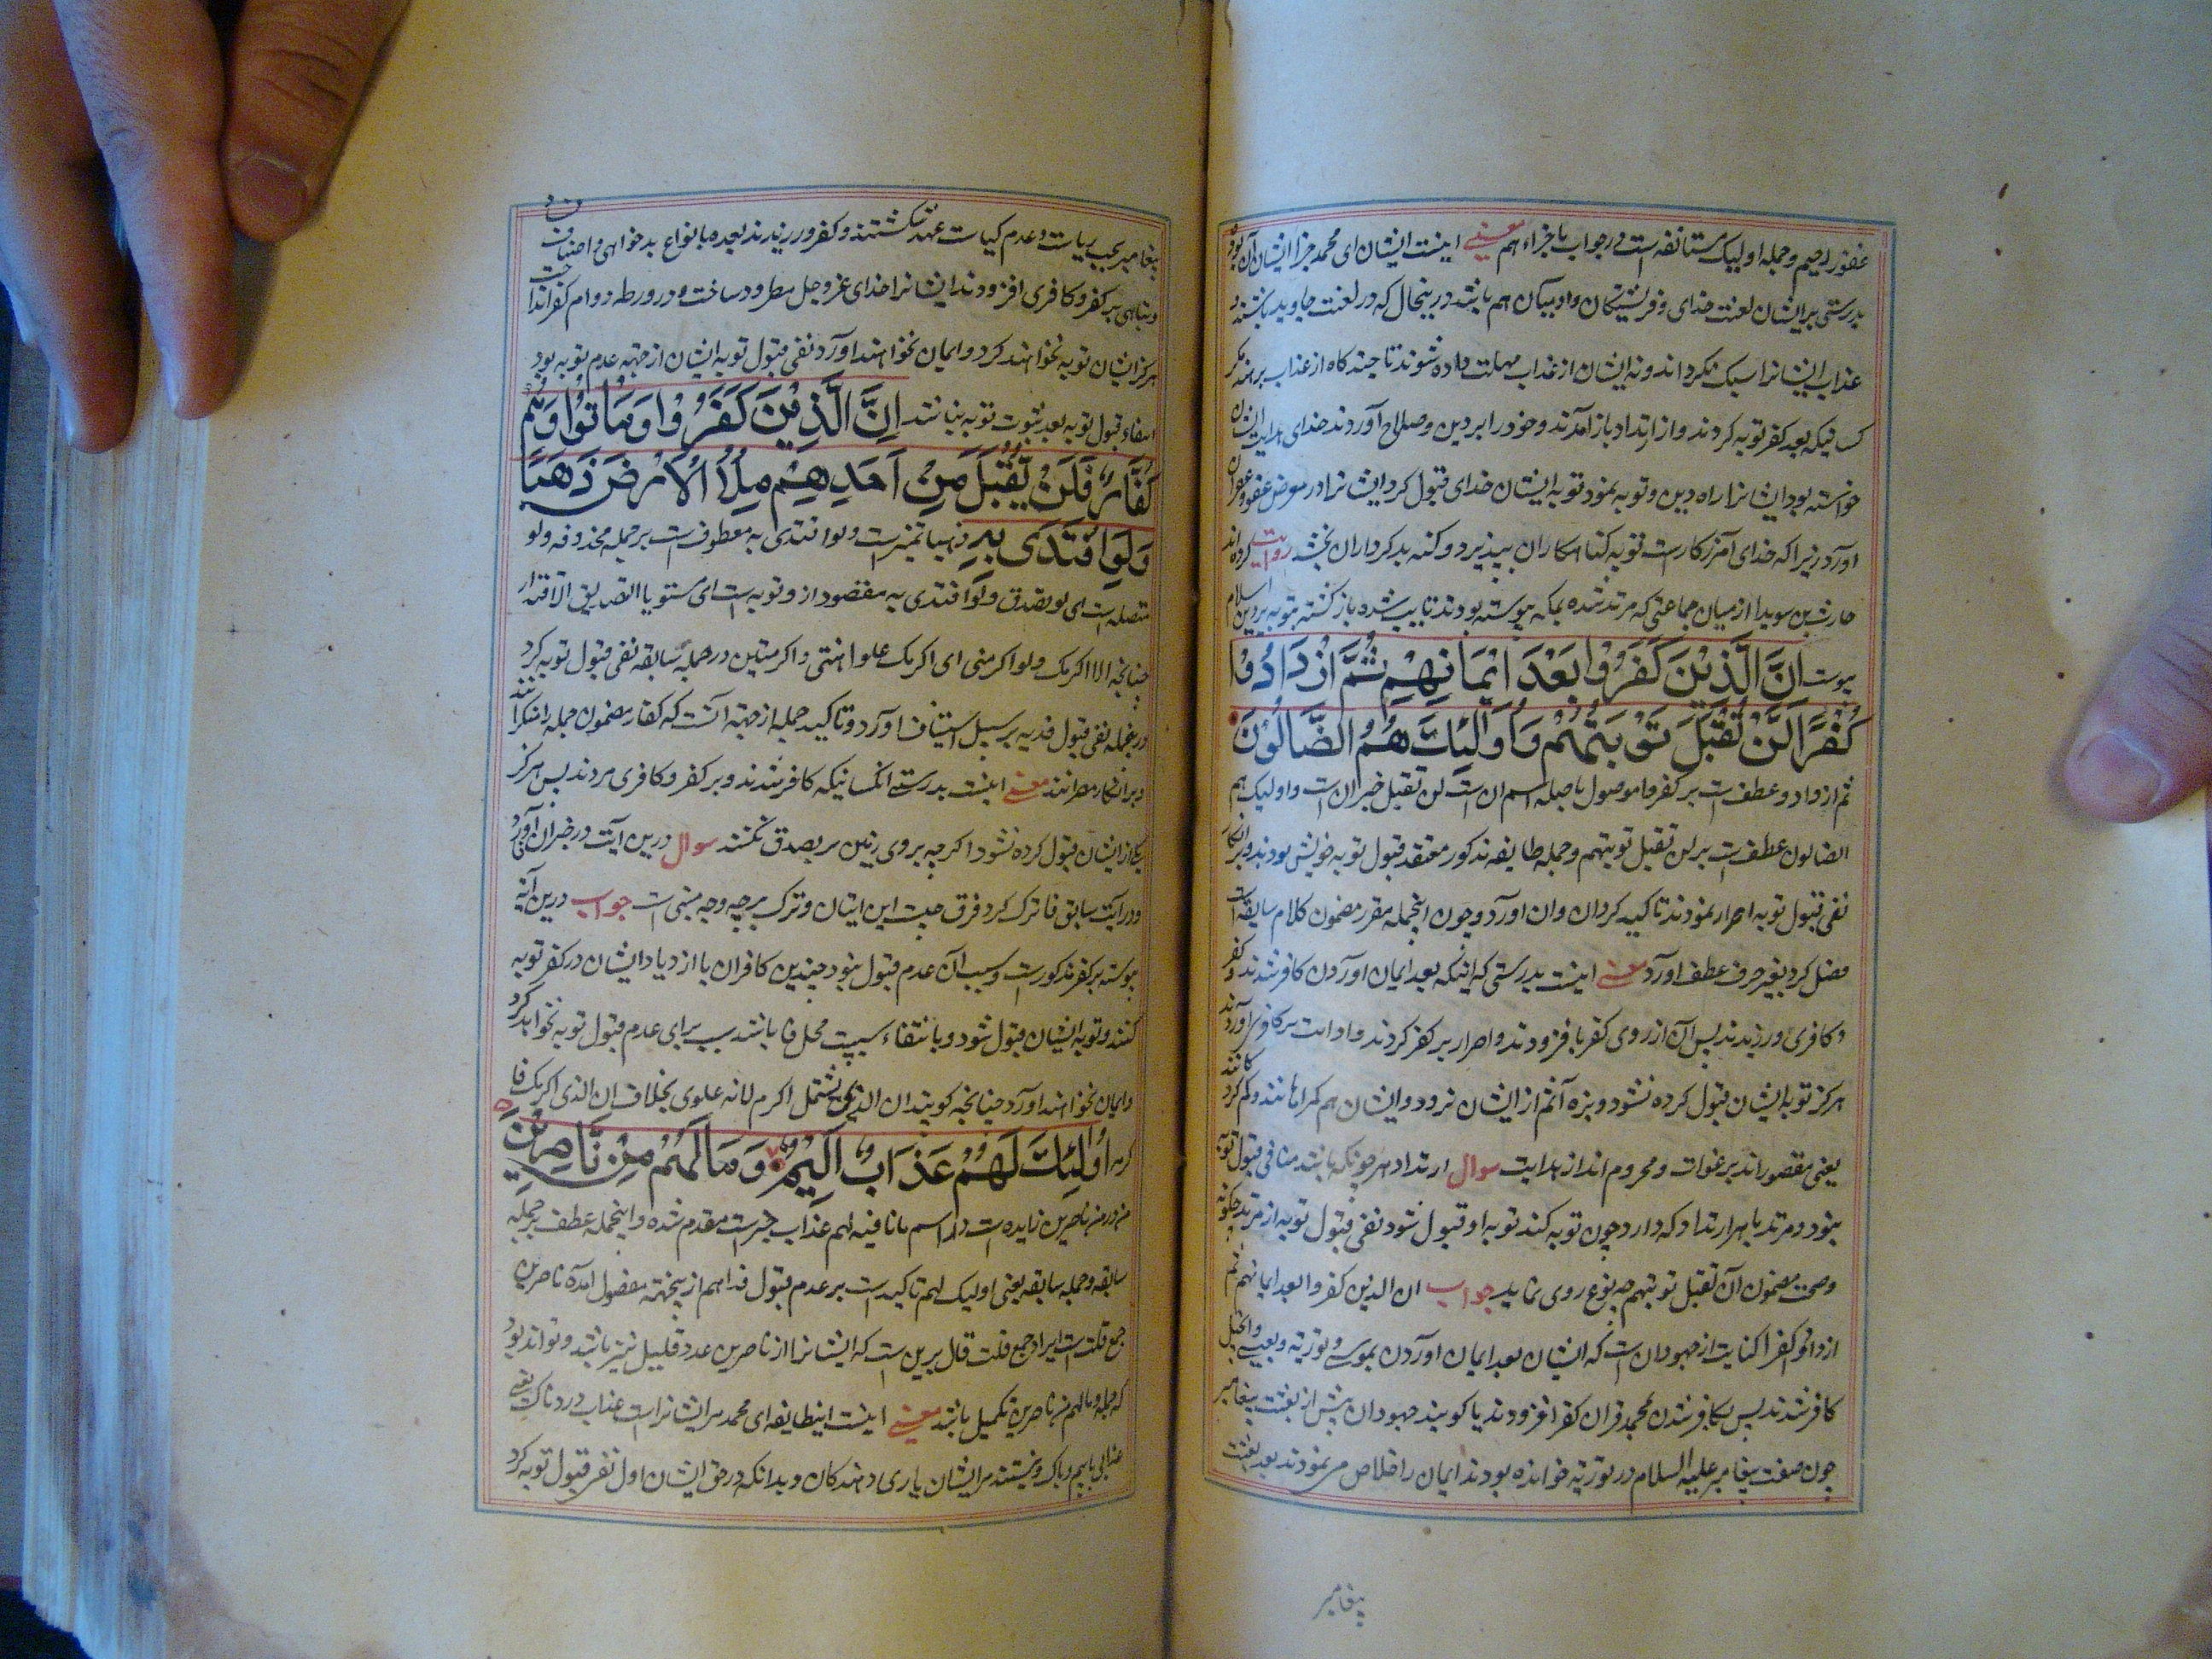 غفور رحیم و جمله اولیک مستانفه است در جواب ما جزاءهم معنی اینست ایشان ای محمد جزا ایشان آن بود
بدرستی بر ایشان لعنت خدای و فرشتکان و ادمیان هم باشد درینحال که در لعنت جاوید باشند و
عذاب ایشانرا سبک نکرداند و نه ایشان از عذاب مهلت داده شوند تا چند کاه از عذاب برهند مکر
کسانیکه بعد کفر توبه کردند و از ارتداد باز آمدند و خود را بر دین و صلاح آوردند خدای هدایت ایشان
خواسته بود ایشانرا راه دین و توبه نمود توبه ایشان خدای قبول کرد ایشانرا در معرض عفو و غفران
اورد زیرا که خدای آمرزکارست توبه کناهکاران بپذیرد و کنه بدکرداران بخشد روایت کرده اند
حارث بن سوید از میان جماعتی که مرتد شده بمکه پیوسته بودند تایب شده باز کشته بتوبه بر دین اسلام
پیوست اِنَّ الَّذِيْنَ كَفَرُوْا بَعْدَ اِيْمَانِهِمْ ثُمَّ ازْدَادُوْا
كُفْرًا لَنْ تُقْبَلَ تَوْبَتُهُمْ وَاُولٰئِكَ هُمُ الضَّالُّوْنَ
ثم ازدادوا عطف است بر کفروا موصول با صله اسم ان است لن تقبل خبر ان است و اولیک هم
الضالون عطف است بر لن تقبل توبتهم و جمله طایفه مذکور معتقد قبول توبه خویش بودند و بر انکار
نفی قبول توبه اصرار نمودند تاکید کردن و ان اورد و چون اینجمله مقرر مضمون کلام سابقه است
فصل کرد بغیر حرف عطف اورد معنی اینست بدرستی که انیکه بعد ایمان اوردن کافر شدند و کفر
و کافری ورزیدند پس آن از روی کفر بافزودند و اصرار بر کفر کردند و ادامت بر کافری آوردند
هرکز توبه ایشان قبول کرده نشود و بزه آثم از ایشان نرود و ایشان هم کمراهانند و کم کرد کانند
یعنی مقصور اند بر غوات و محروم اند از هدایت سوال ارتداد هر چونکه باشد منافی قبول توبه
نبود و مرتد با هر ارتداد که دارد چون توبه کند توبه او قبول شود نفی قبول توبه از مرتد چکونه
وصحت مضمون آن تقبل توبتهم چه نوع روی نماید جواب ان الذین کفروا بعد ایمانهم ثم
ازدادوا کفرا کنایت از جهودان است که ایشان بعد ایمان اوردن بموسی و توریة و بعیسی و انجیل
کافر شدند پس بکافر شدن محمد و قران کفر افزودند یا کویند جهودان پیش از بعثت پیغامبر
چون صفت پیغامبر علیه السلام در توریة خوانده بودند ایمان را خلاص می نمودند بعد بعثت
پیغامبر
پیغامبر بحب ریاست و عدم کیاست عهد شکستند و کفر ورزیدند بعده بانواع بدخواهی و اصناف
و تباهی بر کفر و کافری افزودند ایشانرا خدای عز و جل مطرود ساخت و در ورطه دوام کفر انداخت
هرکز ایشان توبه نخواهند کرد و ایمان نخواهند اورد نفی قبول توبه ایشان از جهة عدم توبه بود
انتفاء قبول توبه بعد ثبوت توبه نباشد اِنَّ الَّذِيْنَ كَفَرُوْا وَمَاتُوْا وَهُمْ
كُفَّارٌ فَلَنْ يُّقْبَلَ مِنْ اَحَدِهِمْ مِلْاُ الْاَرْضِ ذَهَبًا
وَلَوِ افْتَدٰى بِهٖ ذهبا تمیزست و لو افتدی به معطوف است بر جمله محذوفه و لو
متصله است ای لو تصدق و لو افتدی به مقصود از و توبه است ای مستویا التصدیق الافتداء
چنانچه الا اکرمک و لو اکرمنی ای اکرمک علوا هنتی و اکرمتین در جمله سابقه نفی قبول توبه کرد
درینجمله نفی قبول فدیه بر سبیل استیناف اورد و تاکید جمله از جهة آنست که کفار مضمون جمله را منکراند
و بر انکار مصرانند معنی اینست بدرستی انکسانیکه کافر شدند و بر کفر و کافری مردند پس هرکز
یکی از ایشان قبول کرده نشود اکرچه بر روی زمین سر بصدق نکنند سوال درین آیت در خبر ان فا اورد
و در آیت سابق فا ترک کرد فرق چیست این اتیان و ترک بر چه وجه مبنی است جواب درین آیة
پیوسته بر کفر مذکورست و سبب آن عدم قبول بود چندین کافران با ازدیاد ایشان در کفر توبه
کنند و توبه ایشان قبول شود و با انتفاء سببیت محل فا باشد سبب برای عدم قبول توبه نخواهد کرد
و ایمان نخواهند اورد چنانچه کویند ان الذی یشتمل اکرم لانه علوی بخلاف ان الذی اکرمک فا
کرمه اُولٰئِكَ لَهُمْ عَذَابٌ اَلِيْمٌ وَّمَا لَهُمْ مِّنْ نَّاصِرِيْنَ
من در من ناصرین زایده است و اسم ما نافیه لهم عذاب خبرست مقدم شده و اینجمله عطف بر جمله
سابقه و جمله سابقه یعنی اولیک لهم تاکیدست بر عدم قبول فدا هم ازینجهة مفصول آمده ناصرین
جمع قلت است ایراد جمع قلت قال برین ست که ایشانرا از ناصرین عدد قلیل نیز نباشد و تواند بود
که جمله و ما لهم من ناصرین تکمیل باشد معنی اینست اینطایفه ای محمد مر ایشانراست عذاب دردناک یعنی
عذابی با بیم و باک و نیستند مر ایشان یاری دهندکان و بدانکه در حق ایشان اول نفی قبول توبه کرد